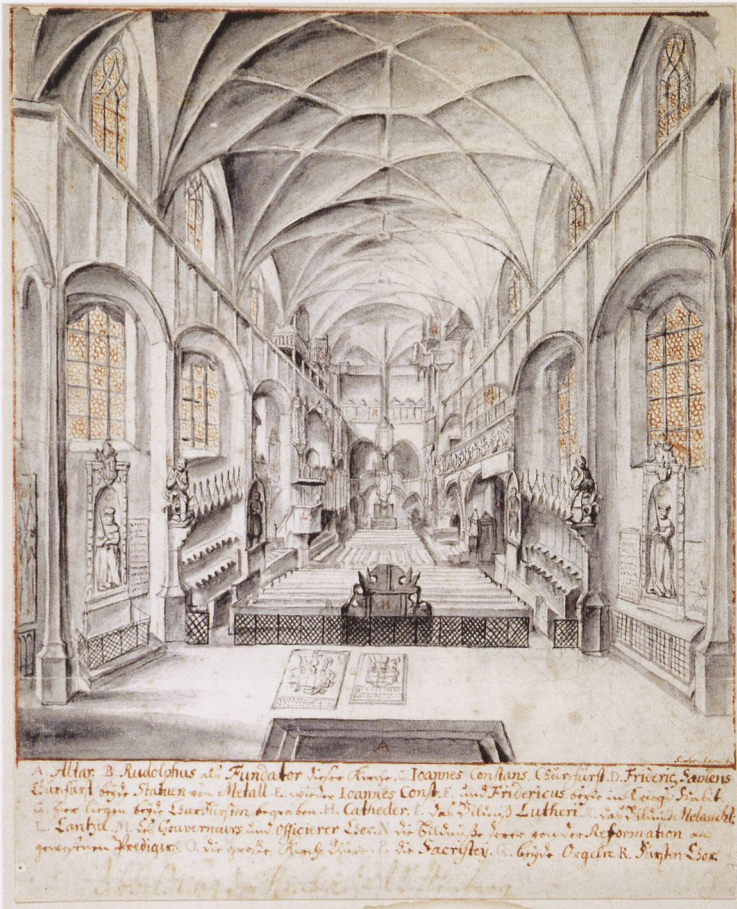 A. Altar. B. Rudolphus als Fundator dieser Kirche. C. Ioannes Constans, Churfürst. D. Frideric, Sapiens
Churfürst beyde Statuen von Metall. E. wieder Ioannes Const. F. und Fridericus beyde im Habit.
G. hier liegen beyde Churfürsten begraben. H. Catheder. I. das Bildnuß Lutheri K. das Bildnuß Melancht.
L. Cantzel. M. des Gouverneurs und Officierer Chor. N. die Bildnuße derer von der Reformation an
gewesenen Prediger. O. die große Kirch Thüre. P. die Sacristey. Q. beyde Orgeln R. Fürsten Chor.
H
A